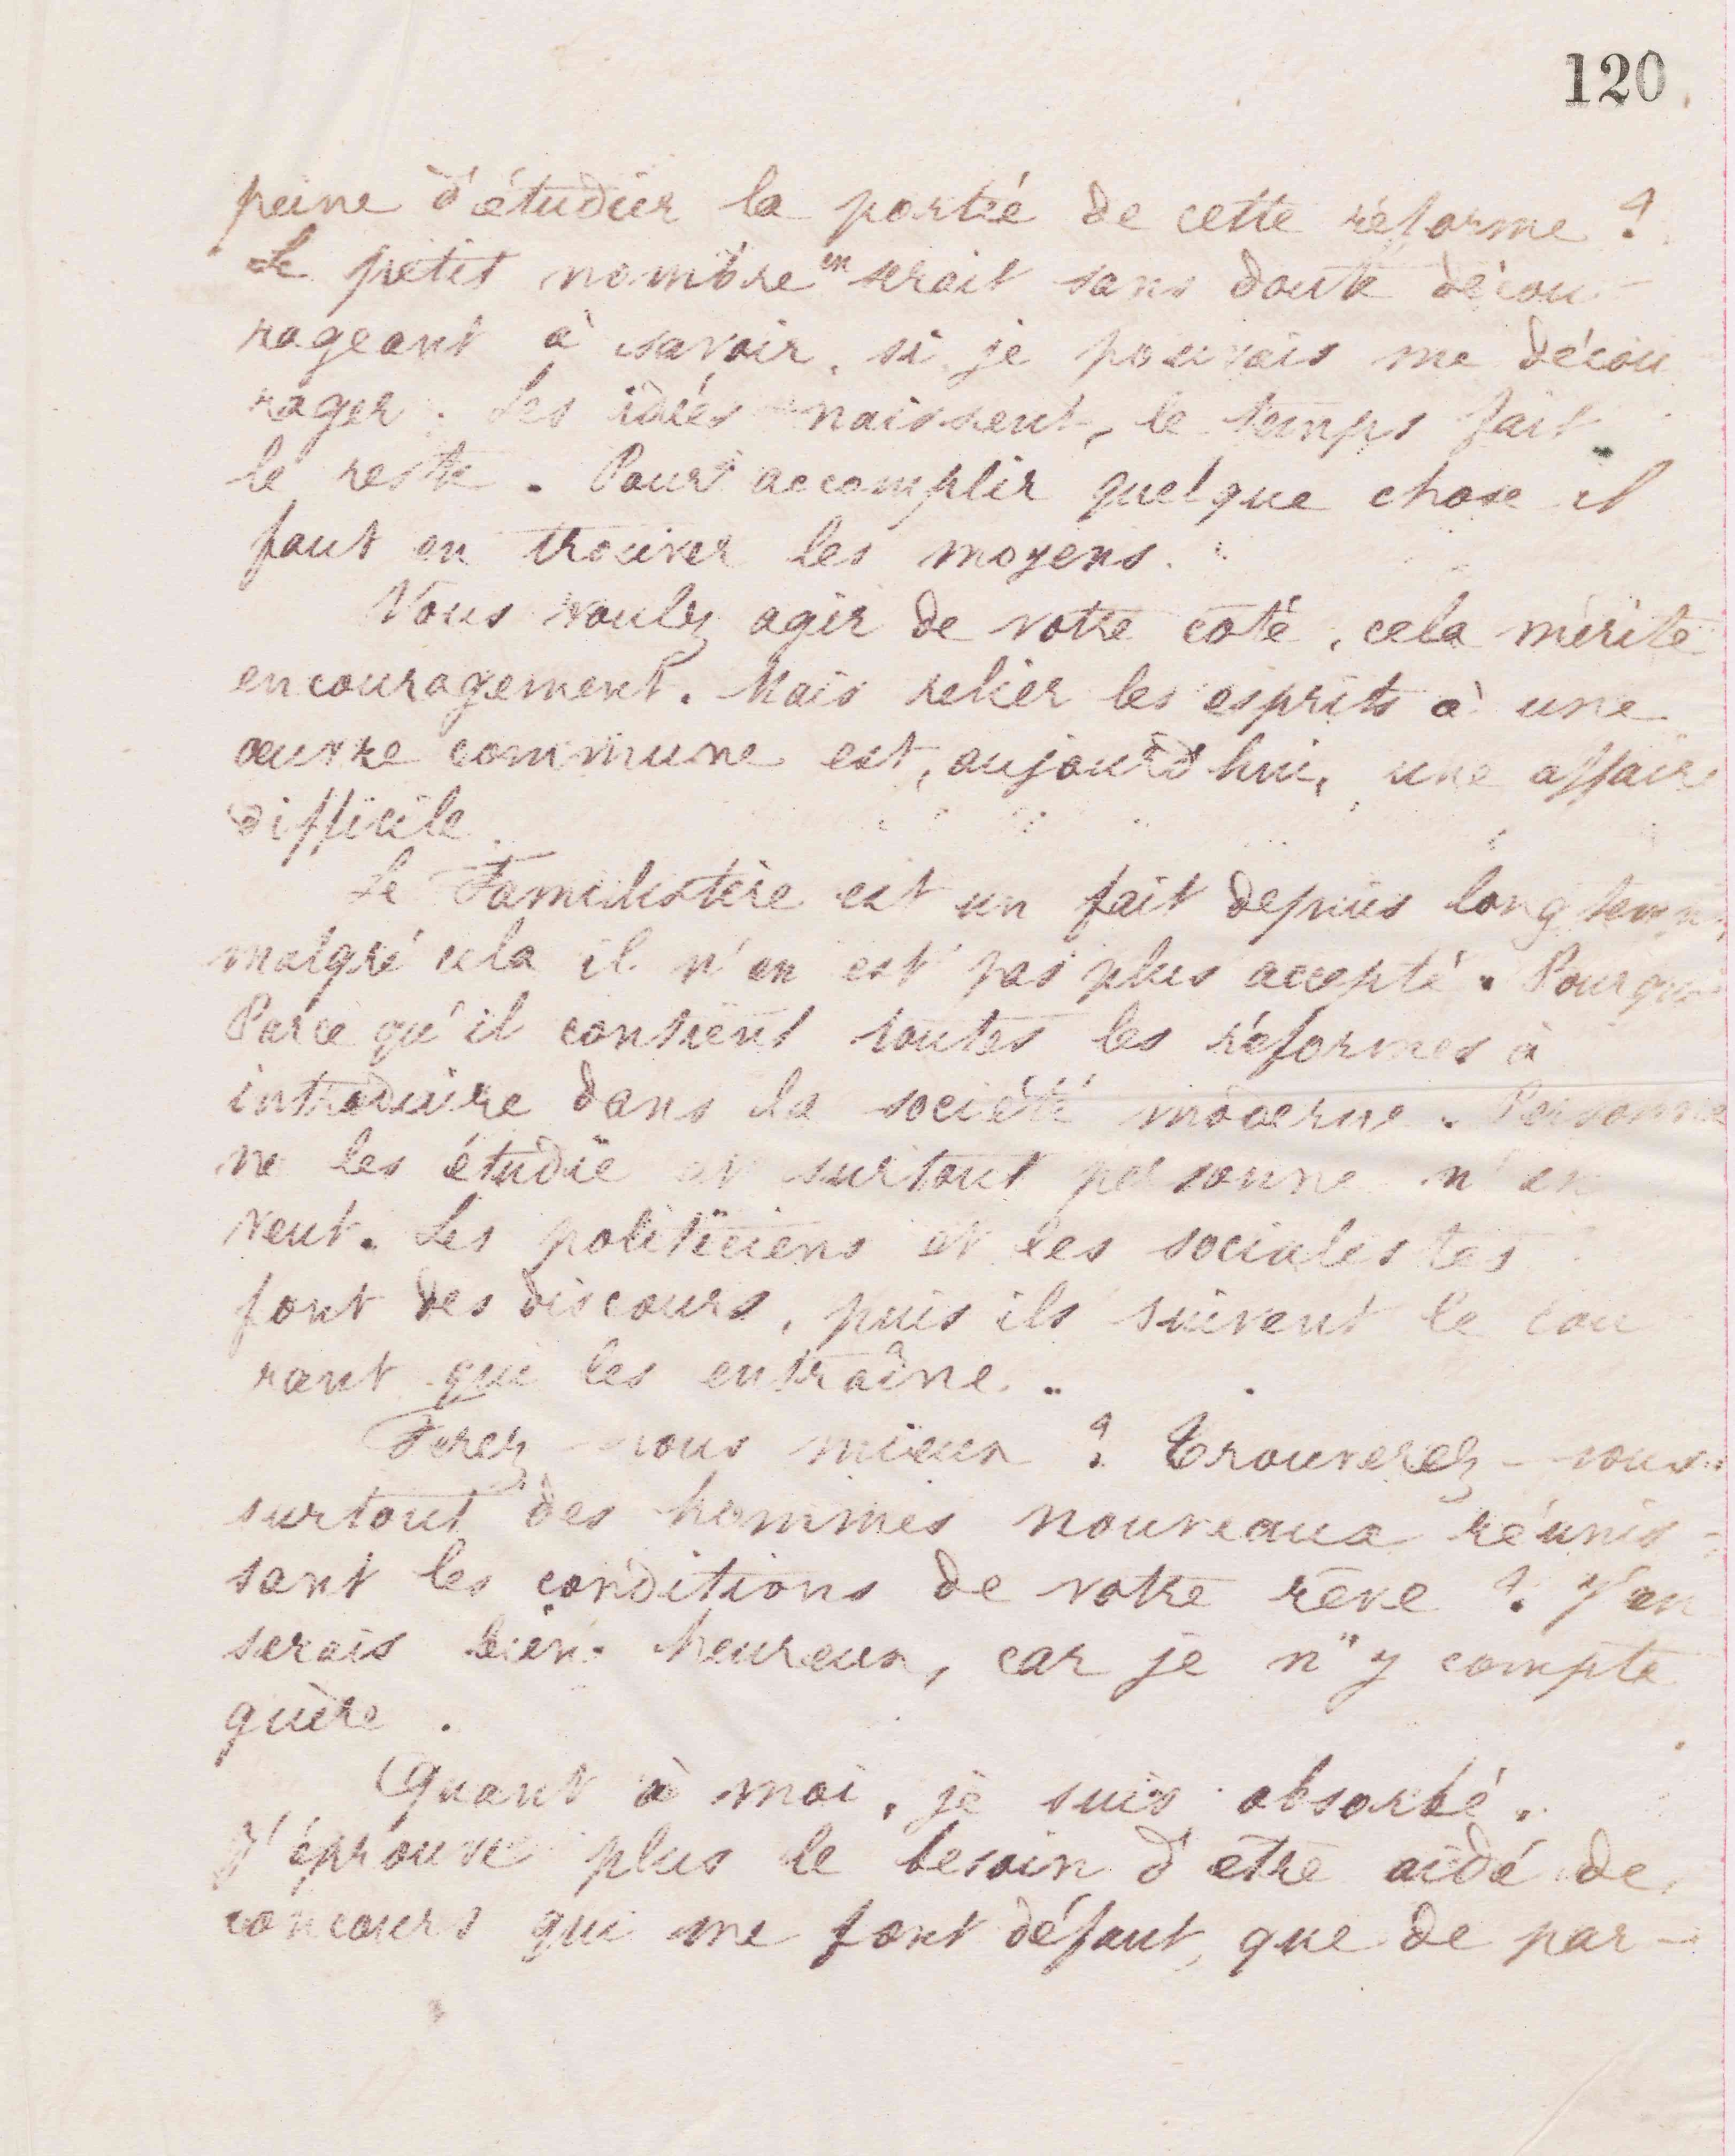 120
peine d'étudier la portée de cette réforme ?
Le petit nombre en serait sans doute décou-
rageant à savoir, si je pouvais me décou
rager. Les idées naissent, le temps fait
le reste. Pour accomplir quelque chose il
faut en trouver les moyens.
Vous voulez agir de votre côté, cela mérite
encouragement. Mais relier les esprits à une
œuvre commune est, aujourd'hui, une affaire
difficile.
Le Familistère est un fait depuis longtemps,
malgré cela il n'en est pas plus accepté. Pourquoi
Parce qu'il contient toutes les réformes à
introduire dans la société moderne. Personne
ne les étudie et surtout personne n'en
veut. Les politiciens et les socialistes
font des discours, puis ils suivent le cou
rant qui les entraîne.
Ferez-vous mieux ? Trouverez-vous
surtout des hommes nouveaux réunis-
sant les conditions de votre rêve ? J'en
serais bien heureux, car je n'y compte
guère.
Quant à moi, je suis absorbé.
J'éprouve plus le besoin d'être aidé de
concours qui me font défaut, que de par-